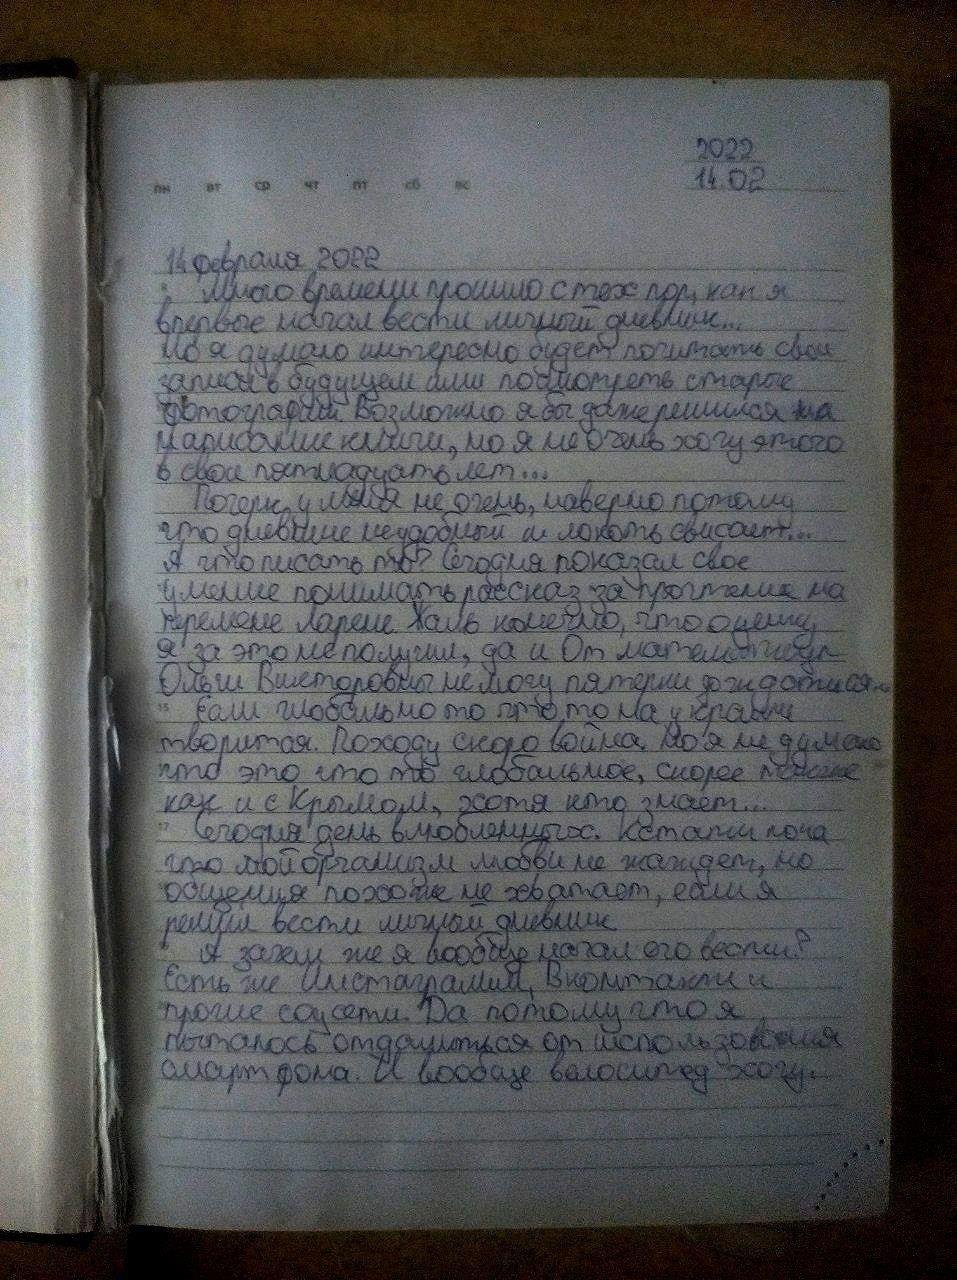 2022
14.02
пн вт ср чт пт сб вс
14 февраля 2022
Много времени прошло с тех пор, как я
впервые начал вести личный дневник...
Но я думаю интересно будет почитать свои
записи в будущем или посмотреть старые
фотографии Возможно я бы даже решился на
написание книги, но я не очень хочу этого
в свои пятнадцать лет...
Почерк у меня не очень, наверно потому
что дневник неудобный и локоть свисает...
А что писать то? Сегодня показал свое
умение понимать рассказ за прочтение на
перемене Ларене Жаль конечно, что оценку
я за это не получил, да и От
Ольги Викторовны не могу пятерки дождаться
15
Если глобально то что то на украине
творится. Походу скоро война. Но я не думаю
что это что то глобальное, скорее
как и с Крымом, хотя кто знает...
17
Сегодня день влюбленных. Кстати пока
что мой организм любви не жаждет, но
общения похоже не хватает, если я
решил вести личный дневник
А зачем же я вообще начал его вести?
Есть же Инстаграмм, Вконтакти и
прочие соцсети. Да потому что я
пытаюсь отдалиться от использования
смартфона. И вообще велосипед хочу.